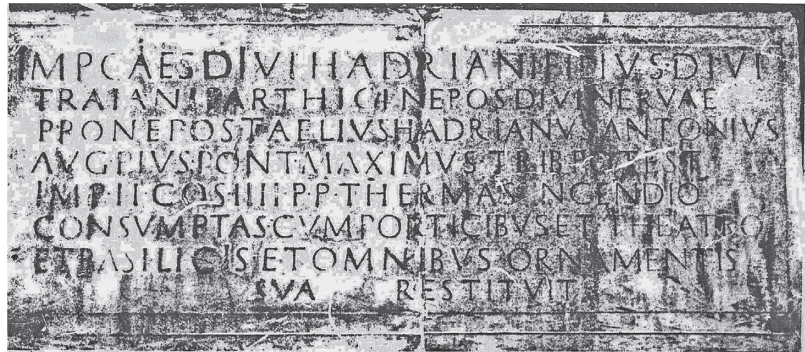 IMP CAES DIVI HADRIANI FILIVS DIVI
TRAIANI PARTHICI NEPOS DIVI NERVAE
PRONEPOS T AELIVS HADRIANVS ANTONIVS
AVG PIVS PONT MAX IMVS TRIB POTEST
IMP II COS IIII P P THERMAS INCENDIO
CONSVMPTAS CVM PORTICIBVS ET THEATRO
ET BASILICIS ET OMNIBVS ORNAMENTIS
SVA RESTITVIT